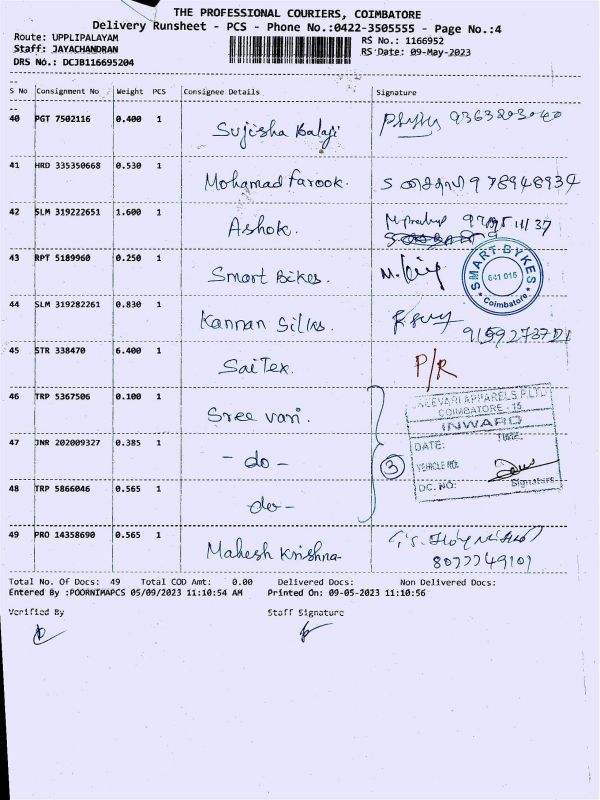 THE PROFESSIONAL COURIERS, COIMBATORE
Delivery Runsheet - PCS - Phone No.:0422-3505555 - Page No.:4
Route: UPPLIPALAYAM RS No.: 1166952
Staff: JAYACHANDRAN RS Date: 09-May-2023
DRS No.: DCJB116695204
S No Consignment No Weight PCS Consignee Details Signature
40 PGT 7502116 0.400 1 Sujisha Balaji
41 HRD 335350668 0.530 1 Mohamad farook. 978948934
42 SLM 319222651 1.600 1 Ashok.
43 RPT 5189960 0.250 1 Smart Bikes.
SMART BYKES
641 015
Coimbatore
44 SLM 319282261 0.830 1 Kannan Silks
45 STR 338470 6.400 1 SaiTex. P/R
46 TRP 5367506 0.100 1 Sree vari.
47 JNR 202009327 0.385 1 - do -
48 TRP 5866046 0.565 1 do -
3
APPARELS P.LTD
COIMBATORE - 15
INWARD
DATE: TIME:
VEHICLE NO:
DC. NO: Signature
49 PRO 14358690 0.565 1 Mahesh Krishna- 8077749101
Total No. Of Docs: 49 Total COD Amt: 0.00 Delivered Docs: Non Delivered Docs:
Entered By :POORNIMAPCS 05/09/2023 11:10:54 AM Printed On: 09-05-2023 11:10:56
Verified By Staff Signature